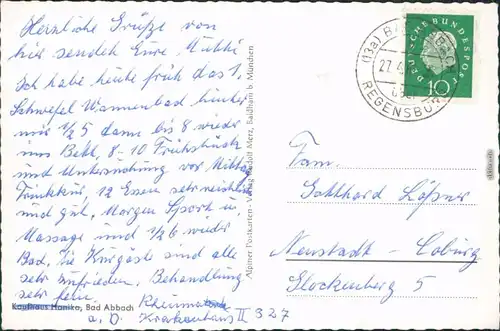 Herzliche Grüße von
hier sendet Eure Mutti
Ich habe heute früh das 1.
Schwefel Wannenbad hinter
mir 1/2 5 dann bis 8 wieder
ins Bett, 8-10 Frühstück
und Untersuchung vor Mittag
Trinkkur, 12 Essen sehr reichlich
und gut. Morgen Sport u.
Massage und 1/2 6 wieder
Bad. Die Kurgäste sind alle
sehr zufrieden. Behandlung
sehr fein.
Kaufhaus Hanika, Bad Abbach
Rheuma
a. D. Krankenhaus II 327
Alpiner Postkarten-Verlag Rudolf Merz, Baldham b. München
(13a) BAD
27.4.
REGENSBURG
DEUTSCHE BUNDESPOST
10
Fam.
Gotthard Löfner
Neustadt - Coburg
Glockenberg 5